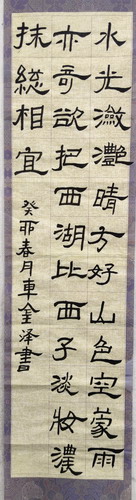 水光瀲灔晴方好山色空蒙雨
亦奇欲把西湖比西子淡妝濃
抹総相宜
癸卯春月車金泽書